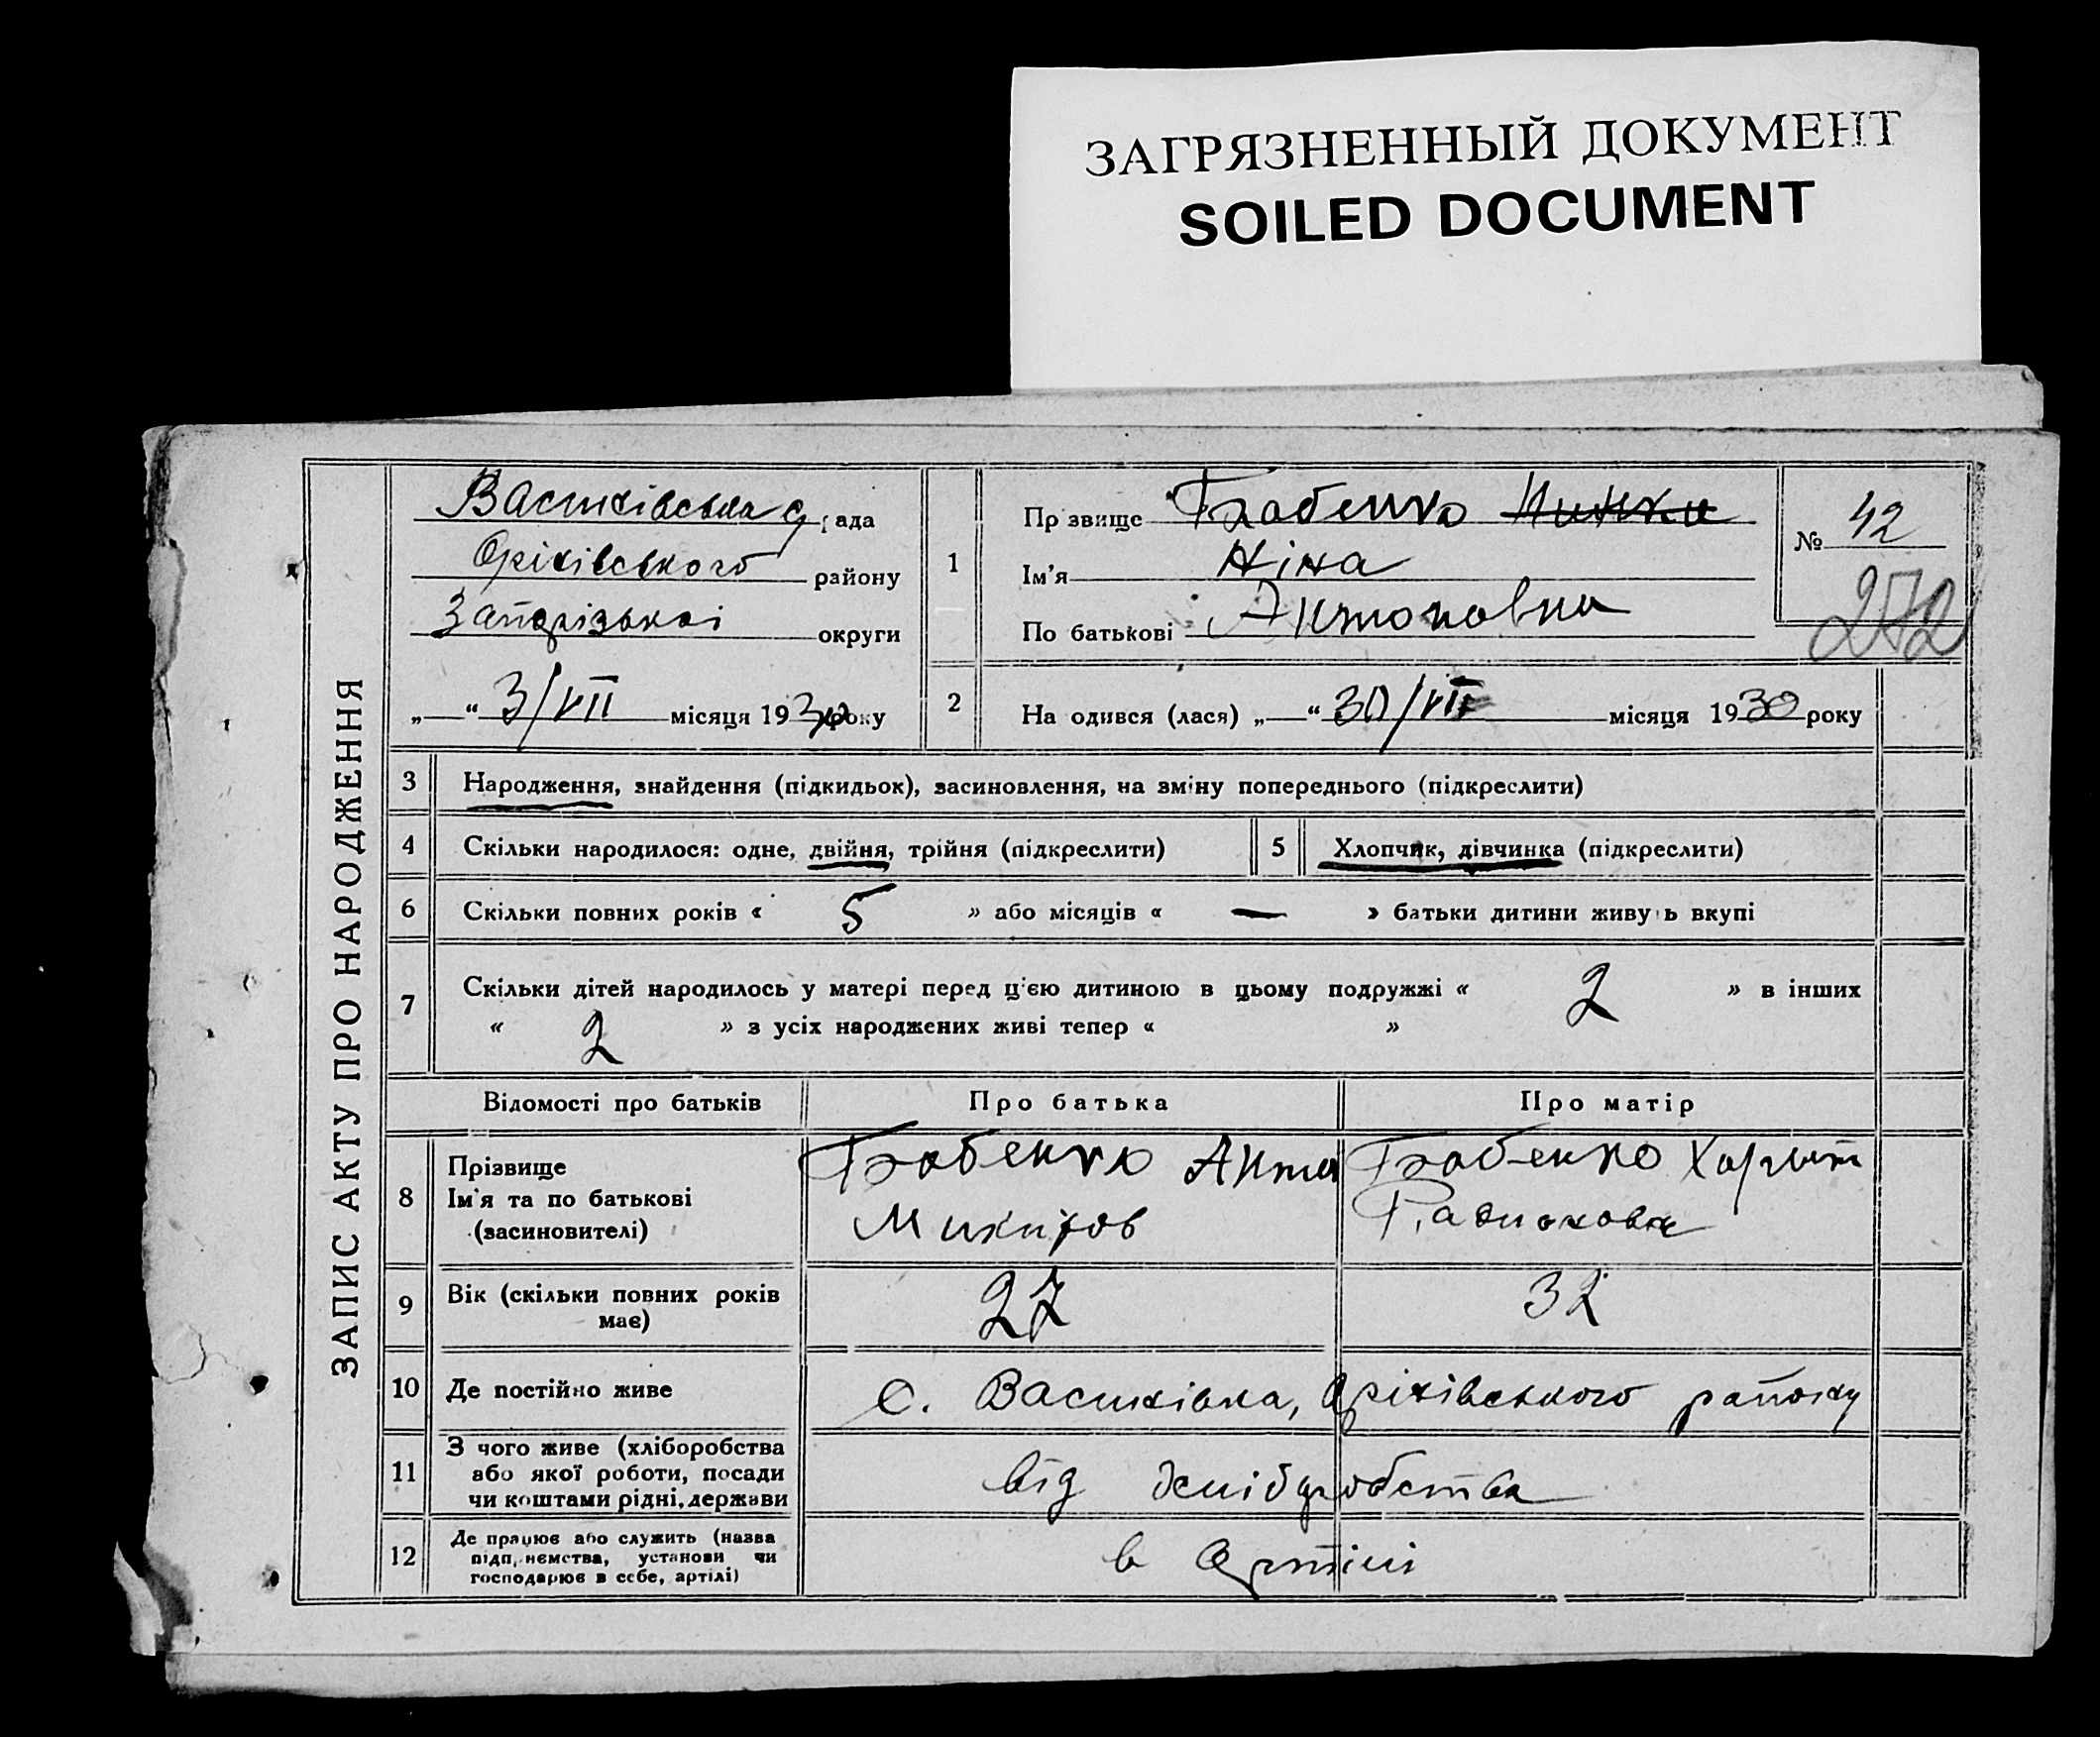 ЗАГРЯЗНЕННЫЙ ДОКУМЕНТ
SOILED DOCUMENT
ЗАПИС АКТУ ПРО НАРОДЖЕННЯ
Василівська с/рада
Оріхівського району
Запорізької округи
„ “ 3/VII місяця 1930 року
1
Прізвище Бабенко
Ім'я Ніна
По батькові Антоновна
№ 42
272
2 На одився (лася) „ “ 30/VII місяця 1930 року
3 Народження, знайдення (підкидьок), засиновлення, на зміну попереднього (підкреслити)
4 Скільки народилося: одне, двійня, трійня (підкреслити)
5 Хлопчик, дівчинка (підкреслити)
6 Скільки повних років « 5 » або місяців « — » батьки дитини живуть вкупі
7 Скільки дітей народилось у матері перед ц'єю дитиною в цьому подружжі « 2 » в інших
« 2 » з усіх народжених живі тепер « »
Відомості про батьків Про батька Про матір
8 Прізвище
Ім'я та по батькові
(засиновителі)
Бабенко Антон
Микитов
Бабенко
9 Вік (скільки повних років
має)
27 32
10 Де постійно живе с. Василівка, Оріхівського району
11 З чого живе (хліборобства
або якої роботи, посади
чи коштами рідні, держави
від хліборобства
12 Де працює або служить (назва
підп,иємства, установи чи
господарює в себе, артілі)
в Артілі